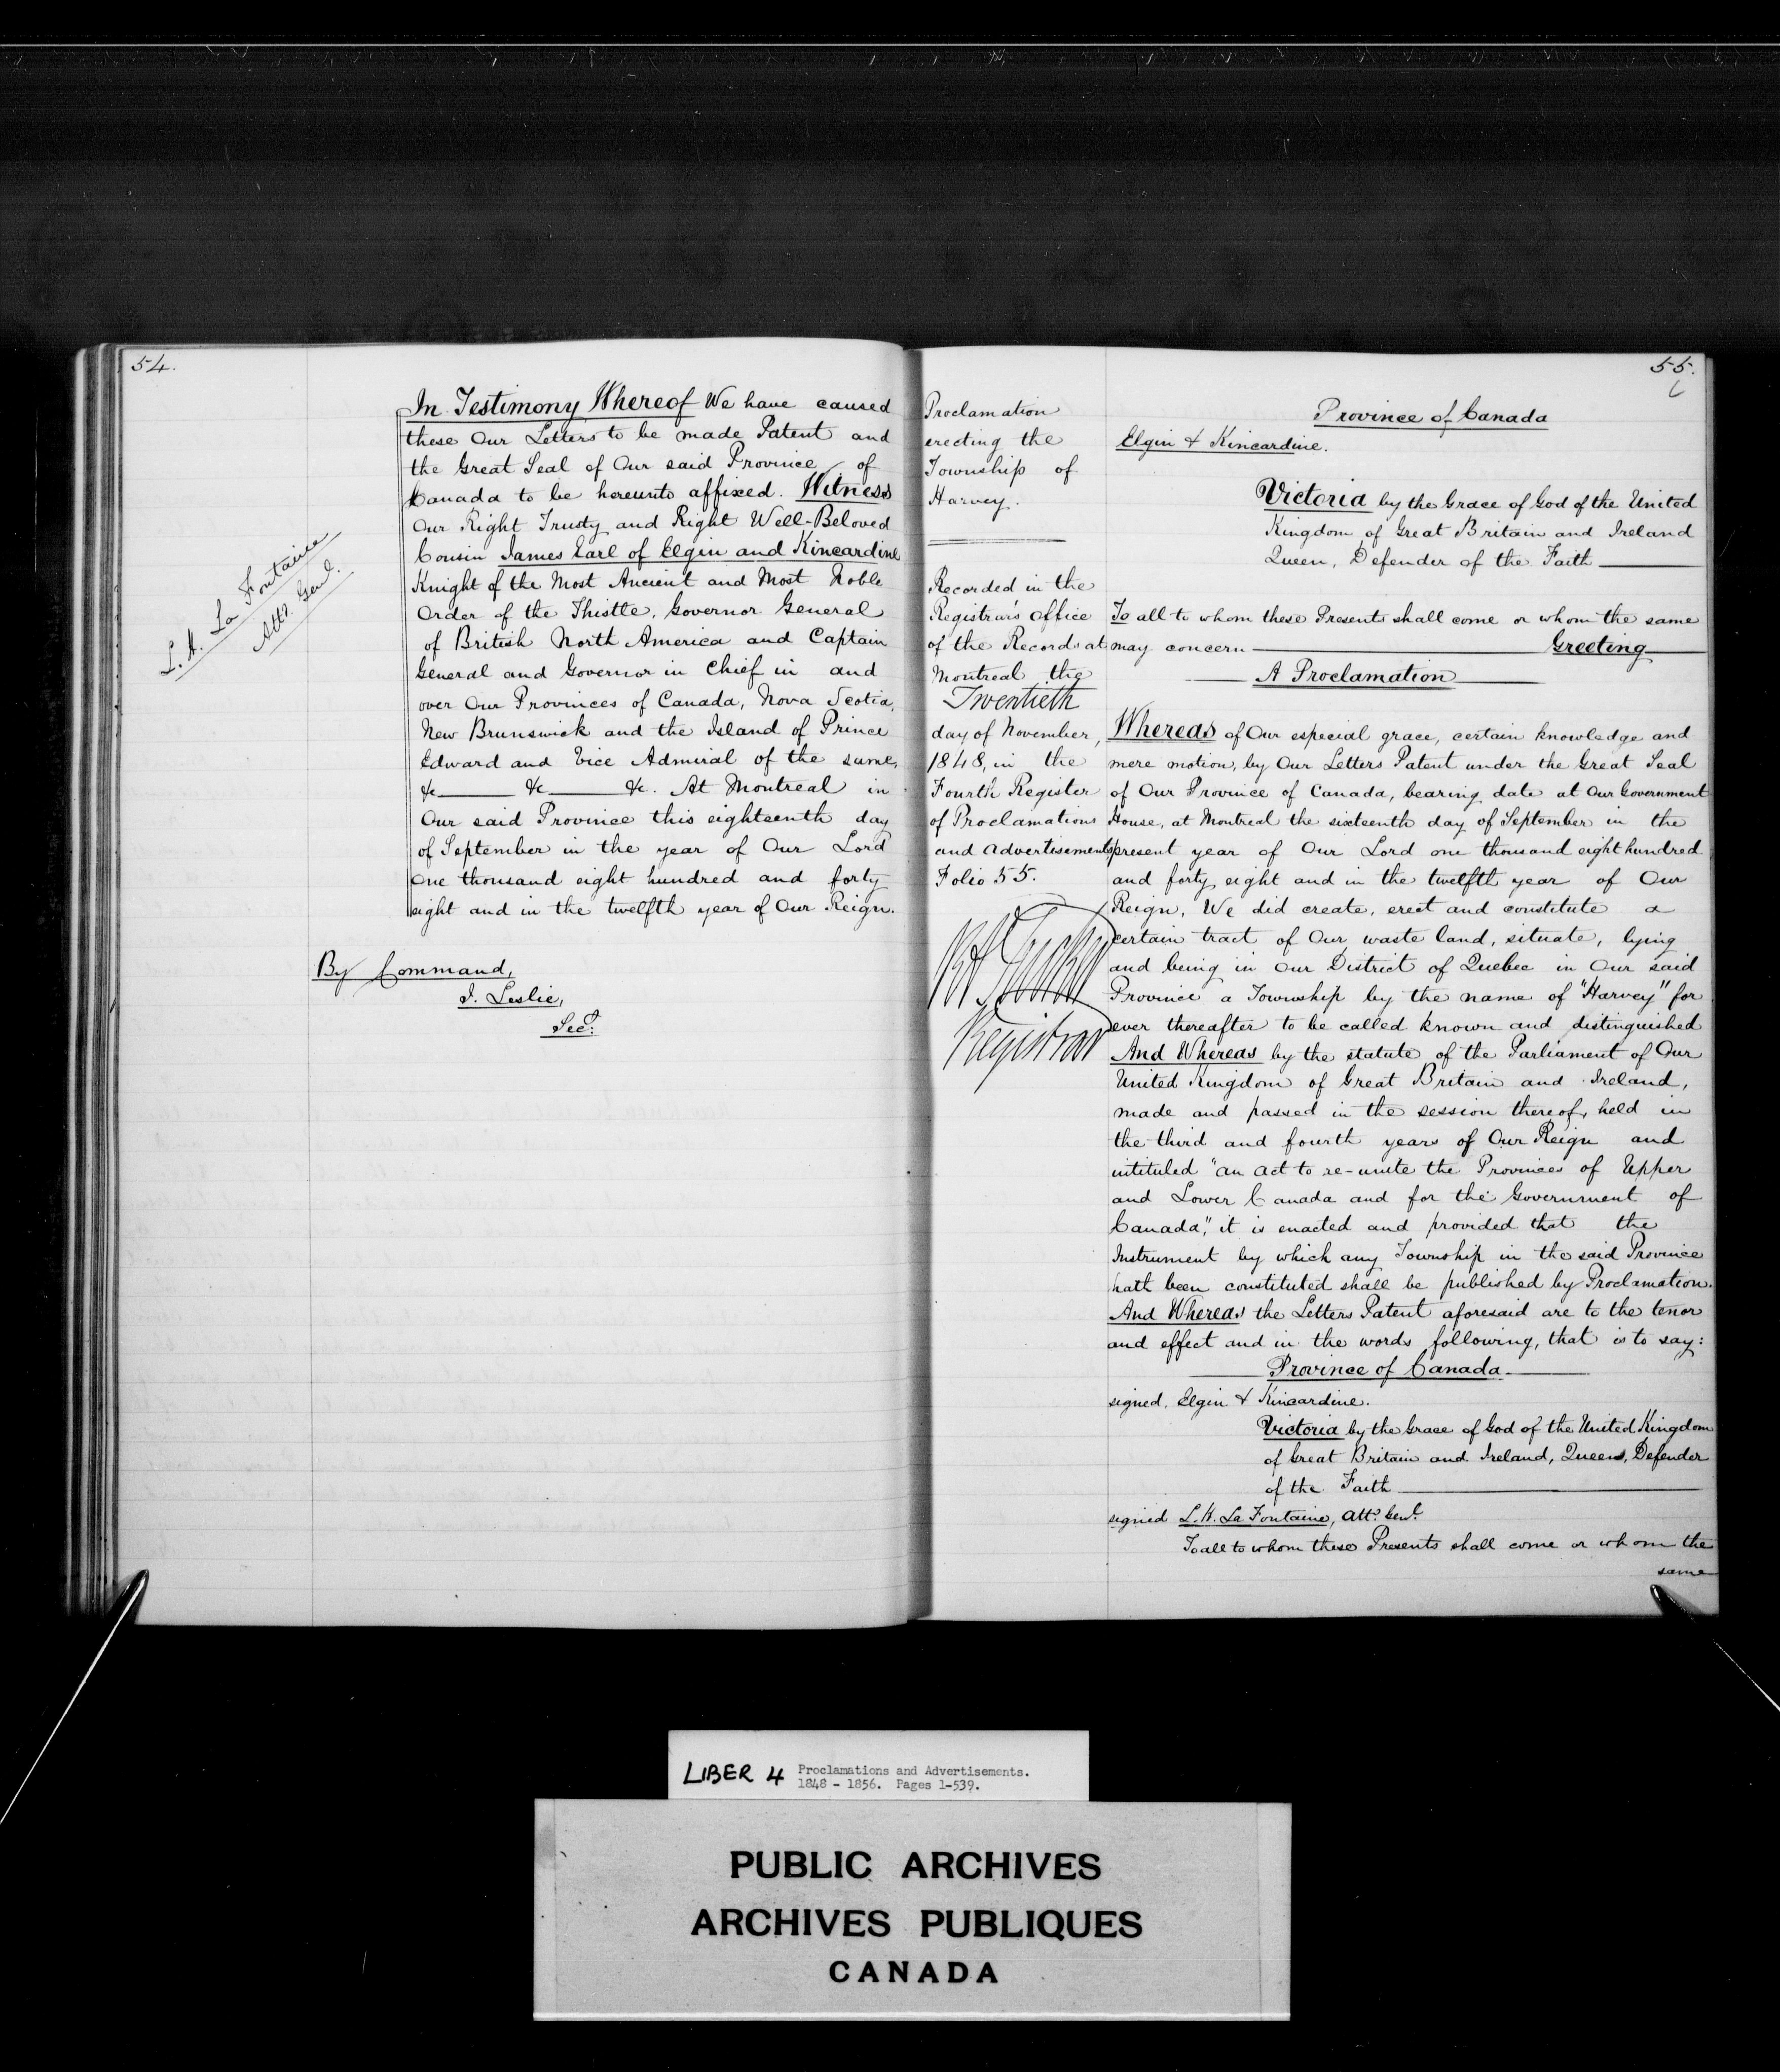 54.
In Testimony Whereof We have caused
these Our Letters to be made Patent and
the Great Seal of Our said Province of
Canada to be hereunto affixed. Witness
Our Right Trusty and Right Well-Beloved
Cousin James Earl of Elgin and Kincardine
Knight of the Most Ancient and Most Noble
Order of the Thistle, Governor General
of British North America and Captain
General and Governor in Chief in and
over Our Provinces of Canada, Nova Scotia,
New Brunswick and the Island of Prince
Edward and Vice Admiral of the same,
&c &c &c. At Montreal in
Our said Province this eighteenth day
of September in the year of Our Lord
One thousand eight hundred and forty
eight and in the twelfth year of Our Reign.
L. H. La Fontaine
Atty. Genl.
By Command,
J. Leslie,
Secy:
55.
Proclamation
erecting the
Township of
Harvey.
Recorded in the
Registrar's Office
of the Records at
Montreal the
Twentieth
day of November,
1848, in the
Fourth Register
of Proclamations
and Advertisements
Folio 55.
Registrar
Province of Canada
Elgin & Kincardine.
Victoria by the Grace of God of the United
Kingdom of Great Britain and Ireland
Queen, Defender of the Faith
To all to whom these Presents shall come or whom the same
may concern Greeting
A Proclamation
Whereas of Our especial grace, certain knowledge and
mere motion, by Our Letters Patent under the Great Seal
of Our Province of Canada, bearing date at Our Government
House, at Montreal the sixteenth day of September in the
present year of Our Lord one thousand eight hundred
and forty eight and in the twelfth year of Our
Reign, We did create, erect and constitute a
certain tract of Our waste land, situate, lying
and being in Our District of Quebec in Our said
Province a Township by the name of "Harvey" for
ever thereafter to be called known and distinguished
And Whereas by the statute of the Parliament of Our
United Kingdom of Great Britain and Ireland,
made and passed in the session thereof, held in
the third and fourth years of Our Reign and
intituled "an act to re-unite the Provinces of Upper
and Lower Canada and for the Government of
Canada," it is enacted and provided that the
Instrument by which any Township in the said Province
hath been constituted shall be published by Proclamation.
And Whereas the Letters Patent aforesaid are to the tenor
and effect and in the words following, that is to say:
Province of Canada
signed, Elgin & Kincardine.
Victoria by the Grace of God of the United Kingdom
of Great Britain and Ireland, Queen, Defender
of the Faith
signed L. H. La Fontaine, Atty. Genl.
To all to whom these Presents shall come or whom the
same
LIBER 4 Proclamations and Advertisements.
1848 - 1856. Pages 1-539.
PUBLIC ARCHIVES
ARCHIVES PUBLIQUES
CANADA